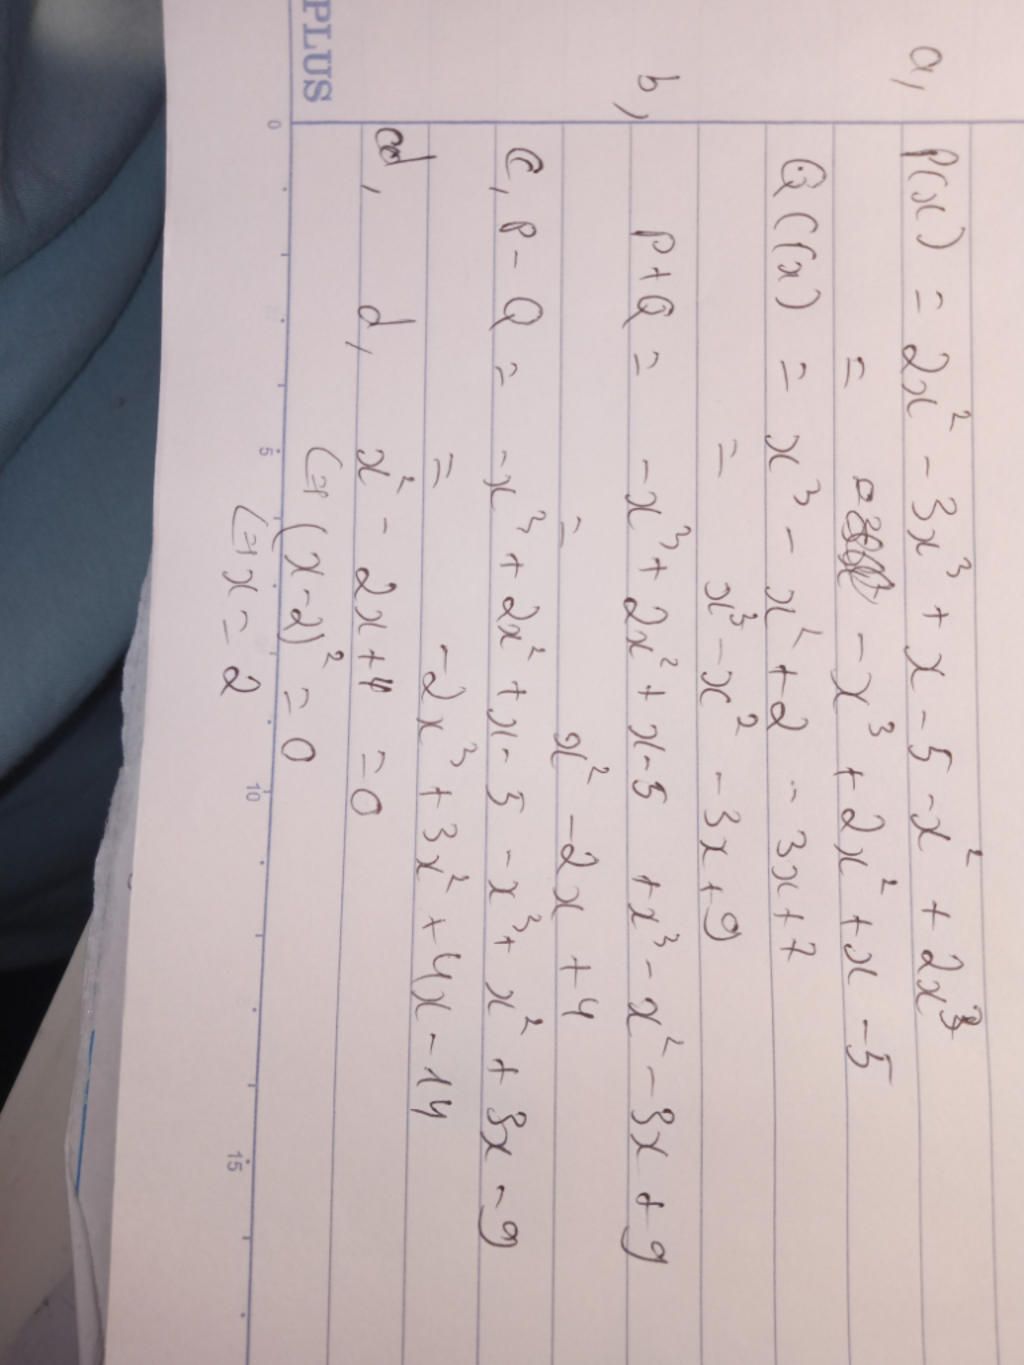 PLUS
a, P(x) = 2x² - 3x³ + x - 5 - x² + 2x³
= - x³ + 2x² + x - 5
Q((x) = x³ - x² + 2 - 3x + 7
= x³ - x² - 3x + 9
b, P+Q = -x³ + 2x² + x - 5 + x³ - x² - 3x + 9
= x² - 2x + 4
c, P - Q = -x³ + 2x² + x - 5 - x³ + x² + 3x - 9
= -2x³ + 3x² + 4x - 14
d, d, x² - 2x + 4 = 0
(=) (x-2)² = 0
(=) x = 2
0 5 10 15